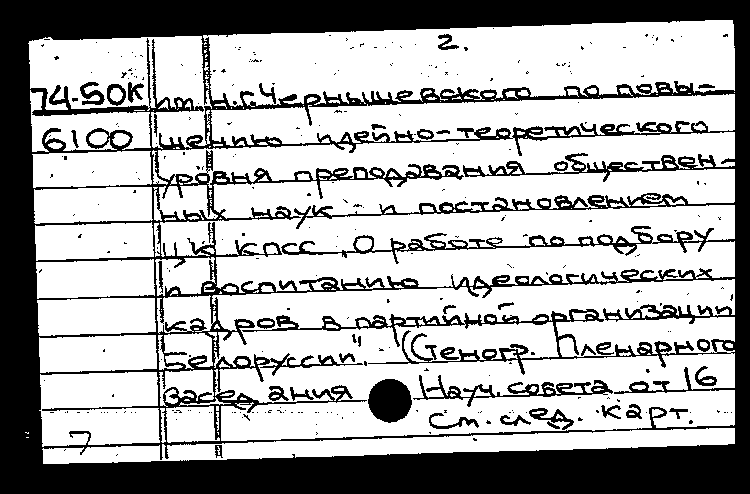 2.
74-50К им. Н.Г.Чернышевского по повы-
6100 шению идейно-теоретического
уровня преподавания обществен-
ных наук и постановлением
ЦК КПСС „О работе по подбору
и воспитанию идеологических
кадров в партийной организации
Белоруссии". (Стеногр. Пленарного
заседания Науч. совета от 16
См. след. карт.
7